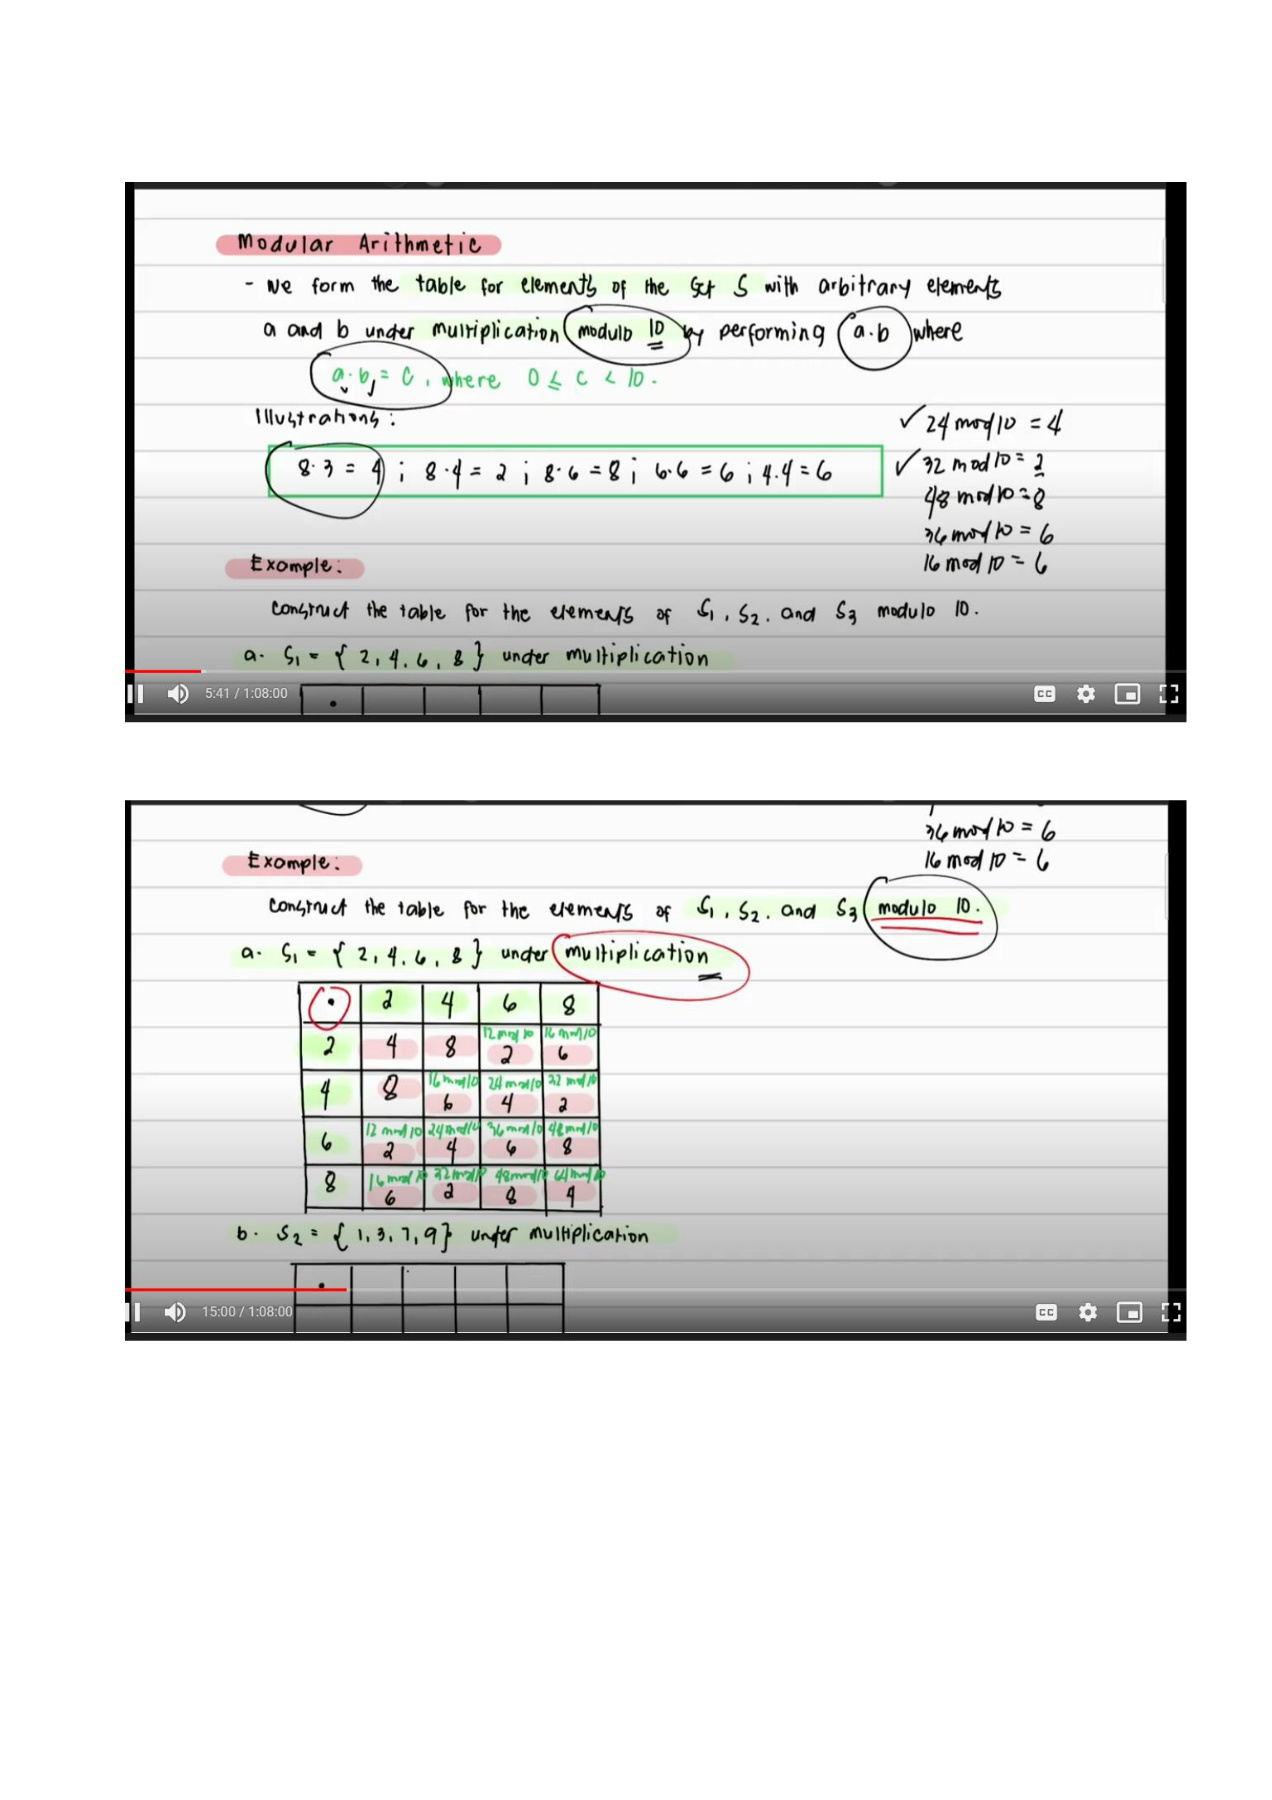 Modular Arithmetic
- We form the table for elements of the set S with arbitrary elements
a and b under multiplication modulo 10 by performing a·b where
a·b = c, where 0 ≤ c < 10.
Illustrations:
8·3 = 4 ; 8·4 = 2 ; 8·6 = 8 ; 6·6 = 6 ; 4·4 = 6
✓ 24 mod 10 = 4
✓ 32 mod 10 = 2
48 mod 10 = 8
36 mod 10 = 6
16 mod 10 = 6
Example:
Construct the table for the elements of S₁, S₂, and S₃ modulo 10.
a. S₁ = { 2, 4, 6, 8 } under multiplication
·
5:41 / 1:08:00
CC
36 mod 10 = 6
16 mod 10 = 6
Example:
Construct the table for the elements of S₁, S₂, and S₃ modulo 10.
a. S₁ = { 2, 4, 6, 8 } under multiplication
· 2 4 6 8
12 mod 10 16 mod 10
2 4 8 2 6
16 mod 10 24 mod 10 32 mod 10
4 8 6 4 2
12 mod 10 24 mod 10 36 mod 10 48 mod 10
6 2 4 6 8
16 mod 10 32 mod 10 48 mod 10 64 mod 10
8 6 2 8 4
b. S₂ = { 1, 3, 7, 9 } under multiplication
·
15:00 / 1:08:00
CC